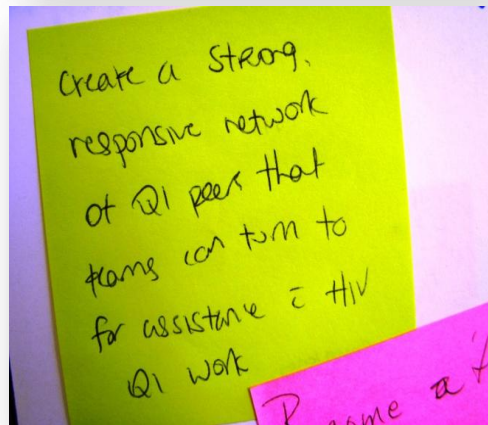 Create a Strong,
responsive network
of QI peers that
teams can turn to
for assistance c̄ HIV
QI work
a